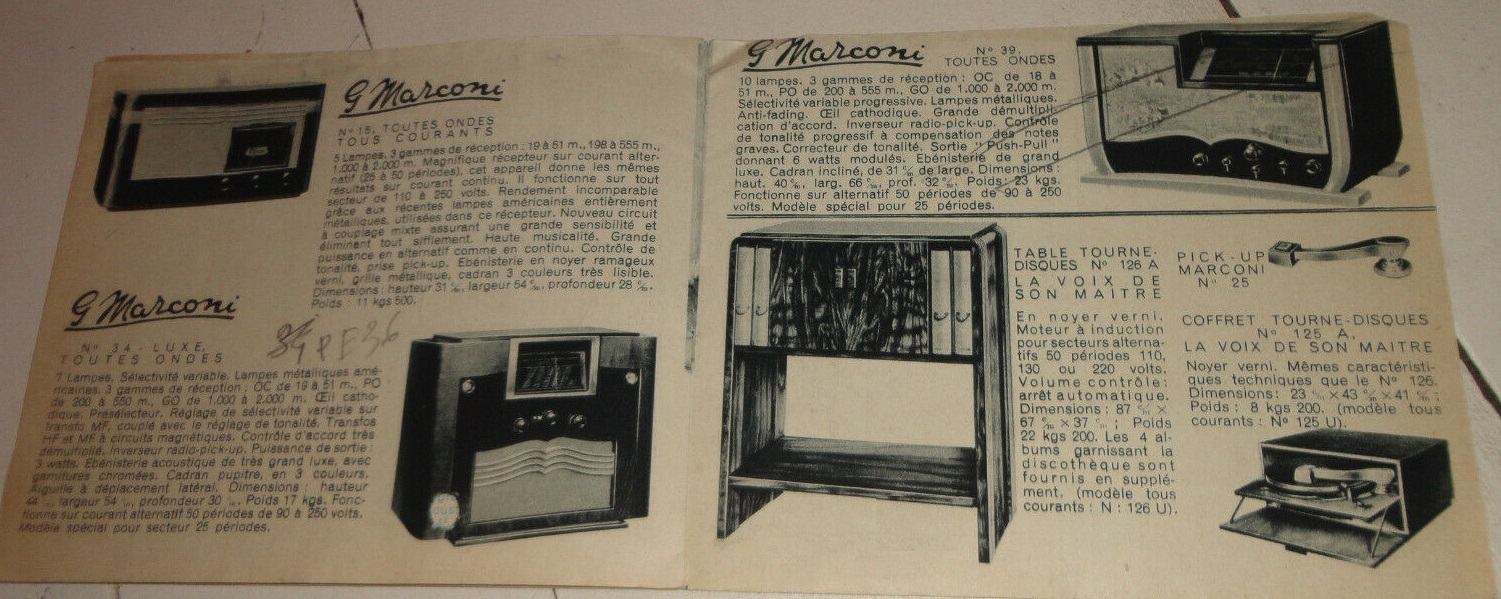 G Marconi
Nº 15. TOUTES ONDES
TOUS COURANTS
5 Lampes. 3 gammes de réception : 19 à 51 m., 198 à 555 m.,
1.000 à 2.000 m. Magnifique récepteur sur courant alter-
natif (25 à 50 périodes), cet appareil donne les mêmes
résultats sur courant continu. Il fonctionne sur tout
secteur de 110 à 250 volts. Rendement incomparable
grâce aux récentes lampes américaines entièrement
métalliques, utilisées dans ce récepteur. Nouveau circuit
à couplage mixte assurant une grande sensibilité et
éliminant tout sifflement. Haute musicalité. Grande
puissance en alternatif comme en continu. Contrôle de
tonalité, prise pick-up. Ebénisterie en noyer ramageux
verni, grille métallique, cadran 3 couleurs très lisible.
Dimensions : hauteur 31 %, largeur 54 %, profondeur 28 %.
Poids : 11 kgs 500.
G Marconi
Nº 34 - LUXE,
TOUTES ONDES
7 Lampes. Sélectivité variable. Lampes métalliques amé-
ricaines. 3 gammes de réception : OC de 19 à 51 m., PO
de 200 à 550 m., GO de 1.000 à 2.000 m. Œil catho-
dique. Présélecteur. Réglage de sélectivité variable sur
transfo MF, couplé avec le réglage de tonalité. Transfos
HF et MF à circuits magnétiques. Contrôle d'accord très
démultiplié. Inverseur radio-pick-up. Puissance de sortie :
3 watts. Ebénisterie acoustique de très grand luxe, avec
garnitures chromées. Cadran pupitre, en 3 couleurs.
Aiguille à déplacement latéral. Dimensions : hauteur
44 %, largeur 54 %, profondeur 30 %. Poids 17 kgs. Fonc-
tionne sur courant alternatif 50 périodes de 90 à 250 volts.
Modèle spécial pour secteur 25 périodes.
G Marconi
Nº 39.
TOUTES ONDES
10 lampes. 3 gammes de réception : OC de 18 à
51 m., PO de 200 à 555 m., GO de 1.000 à 2.000 m.
Sélectivité variable progressive. Lampes métalliques.
Anti-fading. Œil cathodique. Grande démultipli-
cation d'accord. Inverseur radio-pick-up. Contrôle
de tonalité progressif à compensation des notes
graves. Correcteur de tonalité. Sortie "Push-Pull"
donnant 6 watts modulés. Ebénisterie de grand
luxe. Cadran incliné, de 31 % de large. Dimensions :
haut. 40 %, larg. 66 %, prof. 32 %. Poids : 23 kgs.
Fonctionne sur alternatif 50 périodes de 90 à 250
volts. Modèle spécial pour 25 périodes.
TABLE TOURNE-
DISQUES Nº 126 A
LA VOIX DE
SON MAITRE
En noyer verni.
Moteur à induction
pour secteurs alterna-
tifs 50 périodes 110,
130 ou 220 volts.
Volume contrôle :
arrêt automatique.
Dimensions : 87 % ×
67 % × 37 % ; Poids
22 kgs 200. Les 4 al-
bums garnissant la
discothèque sont
fournis en supplé-
ment. (modèle tous
courants : N : 126 U).
PICK-UP
MARCONI
Nº 25
COFFRET TOURNE-DISQUES
Nº 125 A,
LA VOIX DE SON MAITRE
Noyer verni. Mêmes caractéristi-
ques techniques que le Nº 126.
Dimensions : 23 % × 43 % × 41 % ;
Poids : 8 kgs 200. (modèle tous
courants : Nº 125 U).